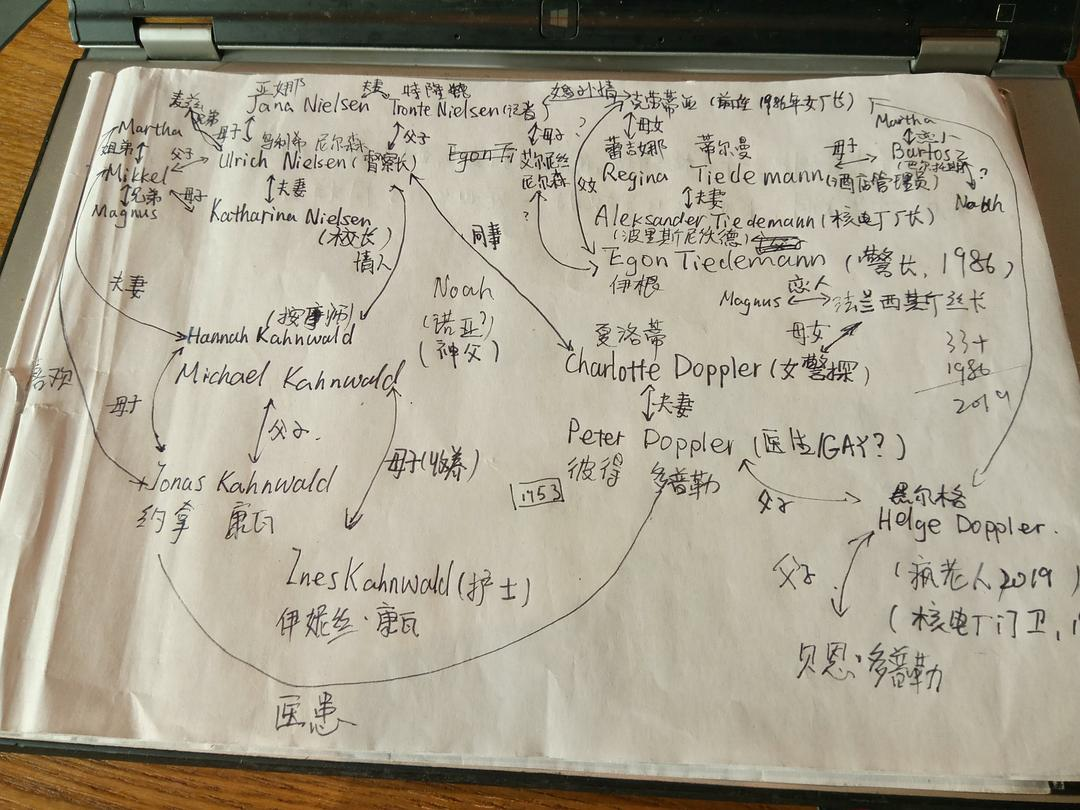 亚娜 夫妻 特隆德 婚外情
麦兹 Jana Nielsen Tronte Nielsen (记者) 克劳蒂亚 (前任1986年女厂长)
兄弟 Martha
Martha 母子 父子 母子 ? 母女 恋人
姐弟 父子 乌利希 尼尔森 艾尔尼丝 蕾吉娜 蒂尔曼 母子 Bartosz
Ulrich Nielsen (警察长) Egon Ti 尼尔森 父女 Regina Tiedemann (酒店管理员) (巴尔托斯)
Mikkel ?
兄弟 母子 夫妻 夫妻 Noah
Magnus Katharina Nielsen ? Aleksander Tiedemann (核电厂厂长)
(校长) (波里斯尼沃德)
情人 同事 Egon Tiedemann (警长, 1986)
伊根
夫妻 Noah 恋人
(诺亚?) Magnus 法兰西斯丝卡
(按摩师) (神父) 夏洛蒂 母女 33+
Hannah Kahnwald Charlotte Doppler (女警探) 1986
喜欢 Michael Kahnwald 2019
夫妻
母子 父子. Peter Doppler (医生/GAY?)
母子(收养) 彼得 多普勒
Jonas Kahnwald 1953 父子 黑尔格
约拿 康瓦 Helge Doppler.
Ines Kahnwald (护士) 父子 (疯老人 2019)
伊妮丝·康瓦 (核电厂门卫, 1
贝恩·多普勒
医患